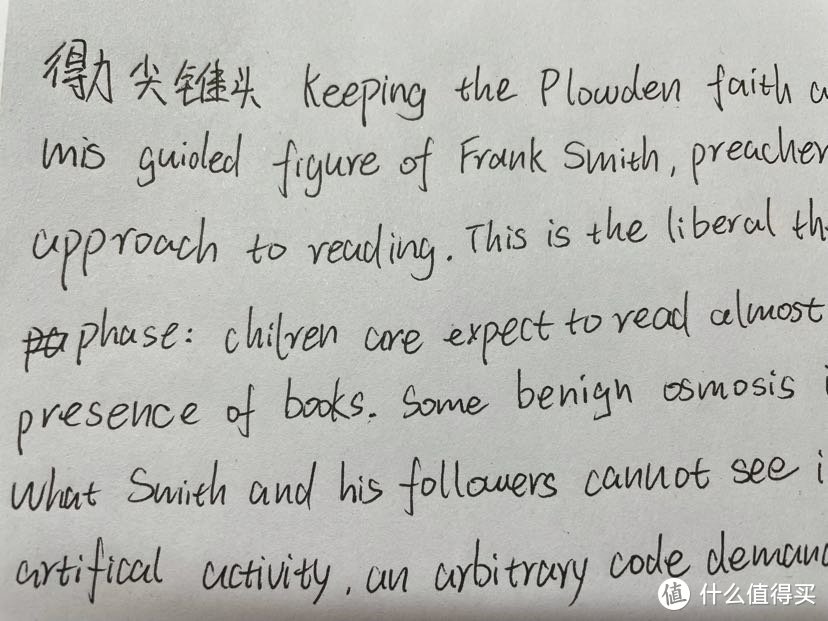 得力 尖锥头 Keeping the Plowden faith a
mis guided figure of Frank Smith, preacher
approach to reading. This is the liberal th
phase: chilren are expect to read almost
presence of books. Some benign osmosis i
What Smith and his followers cannot see i
artifical activity, an arbitrary code deman
值 什么值得买